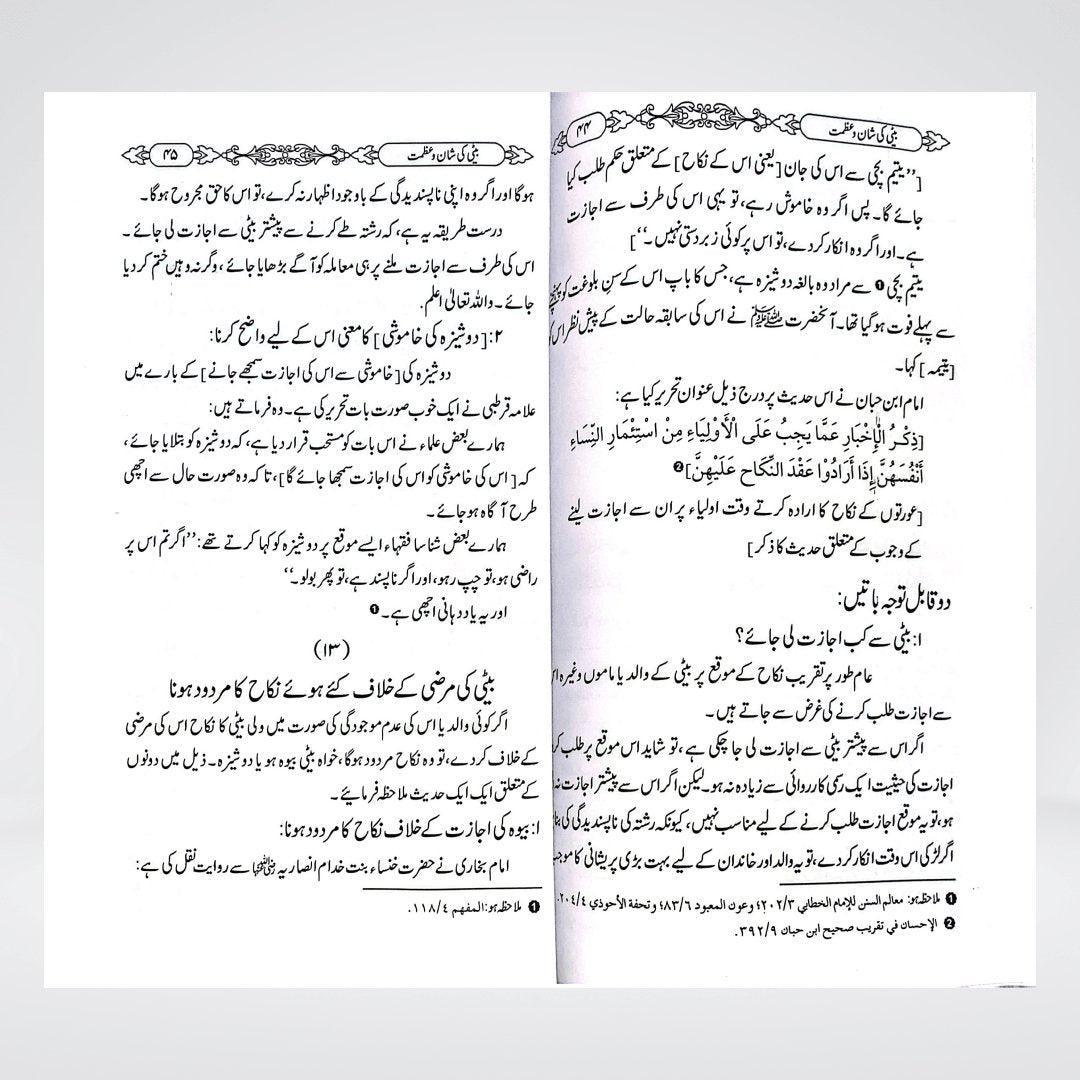 بیٹی کی شان و عظمت
۴۴
[’’یتیم بچی سے اس کی جان [یعنی اس کے نکاح] کے متعلق حکم طلب کیا
جائے گا۔ پس اگر وہ خاموش رہے، تو یہی اس کی طرف سے اجازت
ہے۔ اور اگر وہ انکار کر دے، تو اس پر کوئی زبردستی نہیں۔‘‘]
یتیم بچی ❶ سے مراد وہ بالغہ دوشیزہ ہے، جس کا باپ اس کے سنِ بلوغت کو پہنچنے
سے پہلے فوت ہوگیا تھا۔ آنحضرت ﷺ نے اس کی سابقہ حالت کے پیش نظر اس
[یتیمہ] کہا۔
امام ابن حبان نے اس حدیث پر درج ذیل عنوان تحریر کیا ہے:
[ذِكْرُ الْإِخْبَارِ عَمَّا يَجِبُ عَلَى الْأَوْلِيَاءِ مِنْ اسْتِئْمَارِ النِّسَاءِ
أَنْفُسَهُنَّ إِذَا أَرَادُوْا عَقْدَ النِّكَاحِ عَلَيْهِنَّ] ❷
[عورتوں کے نکاح کا ارادہ کرتے وقت اولیاء پر ان سے اجازت لینے
کے وجوب کے متعلق حدیث کا ذکر]
دو قابل توجہ باتیں:
۱: بیٹی سے کب اجازت لی جائے؟
عام طور پر تقریب نکاح کے موقع پر بیٹی کے والد یا ماموں وغیرہ
سے اجازت طلب کرنے کی غرض سے جاتے ہیں۔
اگر اس سے پیشتر بیٹی سے اجازت لی جا چکی ہے، تو شاید اس موقع پر طلب
اجازت کی حیثیت ایک رسمی کارروائی سے زیادہ نہ ہو۔ لیکن اگر اس سے پیشتر اجازت نہ
ہو، تو یہ موقع اجازت طلب کرنے کے لیے مناسب نہیں، کیونکہ رشتہ کی ناپسندیدگی کی
اگر لڑکی اس وقت انکار کر دے، تو یہ والد اور خاندان کے لیے بہت بڑی پریشانی کا
❶ ملاحظہ ہو: معالم السنن للإمام الخطابي ۲۰۲/۳؛ وعون المعبود ۴۸۳/۶؛ وتحفة الأحوذي ۲۰۴/۴.
❷ الإحسان في تقريب صحيح ابن حبان ۳۹۲/۹.
بیٹی کی شان و عظمت
۴۵
ہوگا اور اگر وہ اپنی ناپسندیدگی کے باوجود اظہار نہ کرے، تو اس کا حق مجروح ہوگا۔
درست طریقہ یہ ہے، کہ رشتہ طے کرنے سے پیشتر بیٹی سے اجازت لی جائے۔
اس کی طرف سے اجازت ملنے پر ہی معاملہ کو آگے بڑھایا جائے، وگرنہ وہیں ختم کر دیا
جائے۔ واللہ تعالیٰ اعلم.
۲: [دوشیزہ کی خاموشی] کا معنی اس کے لیے واضح کرنا:
دوشیزہ کی [خاموشی سے اس کی اجازت سمجھے جانے] کے بارے میں
علامہ قرطبی نے ایک خوب صورت بات تحریر کی ہے۔ وہ فرماتے ہیں:
ہمارے بعض علماء نے اس بات کو مستحب قرار دیا ہے، کہ دوشیزہ کو بتلایا جائے،
کہ [اس کی خاموشی کو اس کی اجازت سمجھا جائے گا]، تاکہ وہ صورت حال سے اچھی
طرح آگاہ ہو جائے۔
ہمارے بعض شناسا فقہاء ایسے موقع پر دوشیزہ کو کہا کرتے تھے: ’’اگر تم اس پر
راضی ہو، تو چپ رہو، اور اگر ناپسند ہے، تو پھر بولو۔‘‘
اور یہ یاد دہانی اچھی ہے۔ ❶
(۱۳)
بیٹی کی مرضی کے خلاف کئے ہوئے نکاح کا مردود ہونا
اگر کوئی والد یا اس کی عدم موجودگی کی صورت میں ولی بیٹی کا نکاح اس کی مرضی
کے خلاف کر دے، تو وہ نکاح مردود ہوگا، خواہ بیٹی بیوہ ہو یا دوشیزہ۔ ذیل میں دونوں
کے متعلق ایک ایک حدیث ملاحظہ فرمائیے۔
ا: بیوہ کی اجازت کے خلاف نکاح کا مردود ہونا:
امام بخاری نے حضرت خنساء بنت خدام انصاریہ رضی اللہ عنہا سے روایت نقل کی ہے:
❶ ملاحظہ ہو: المفهم ۱۱۸/۴.